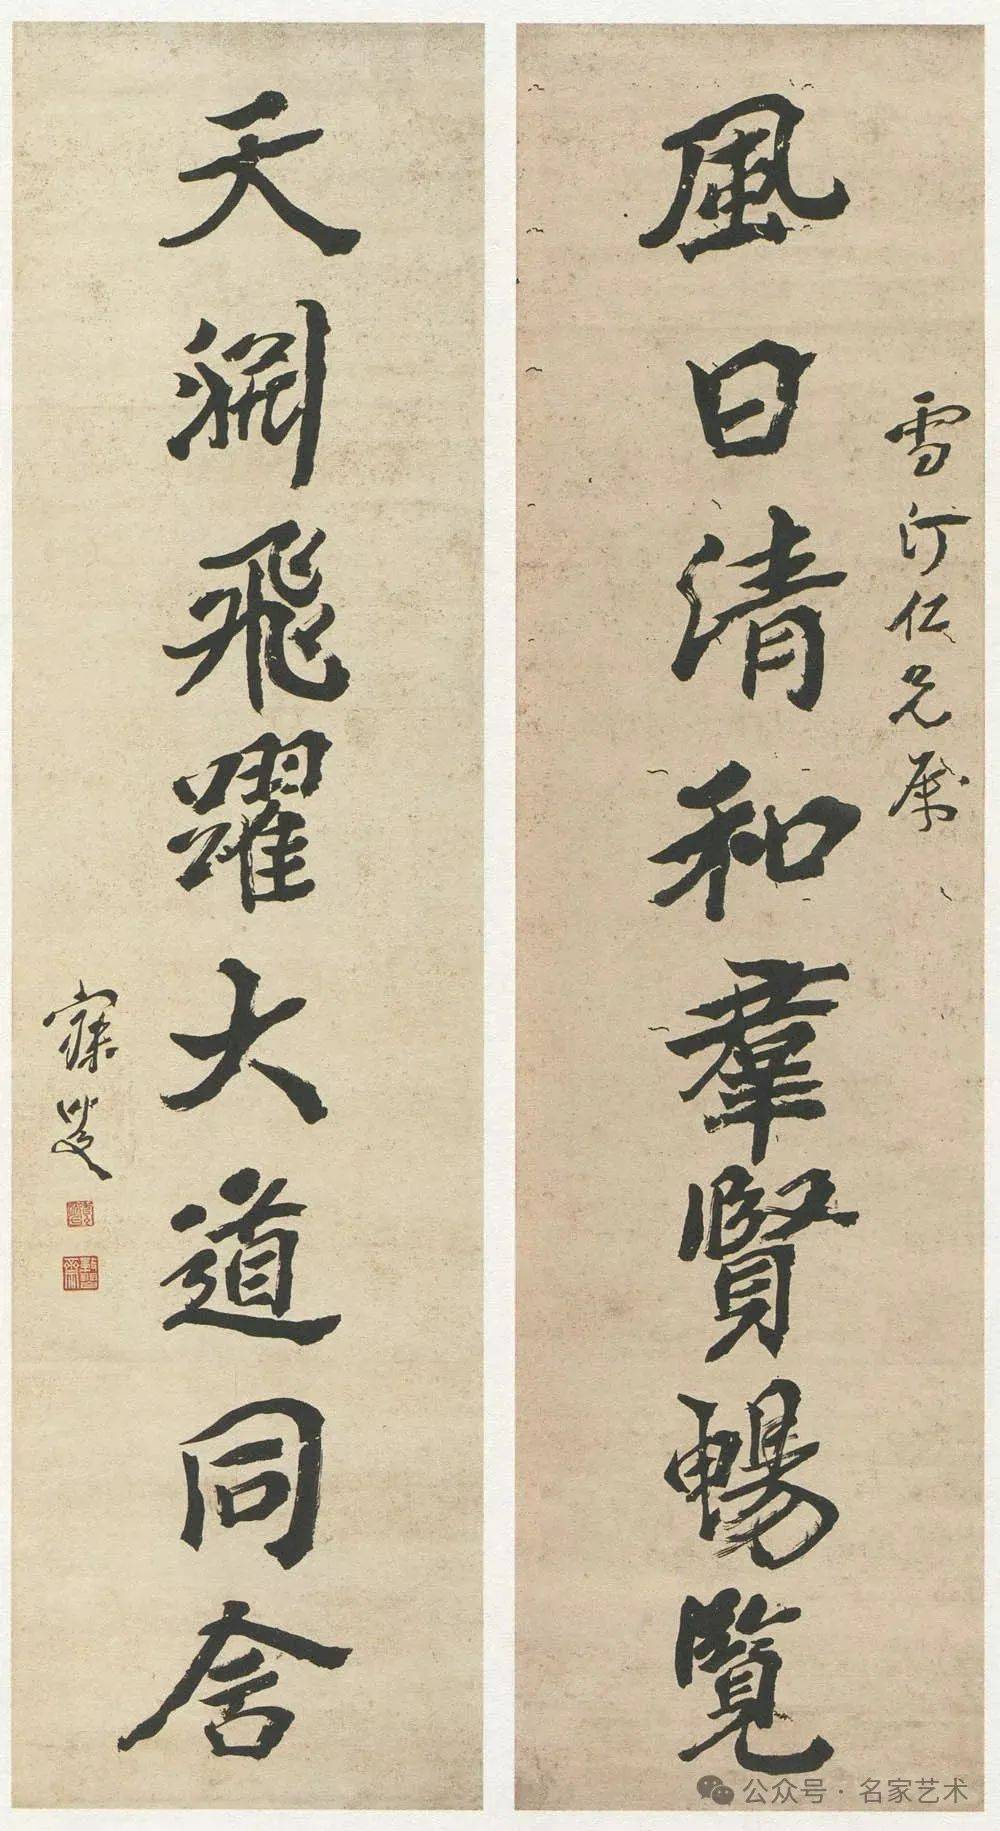 雪汀仁兄屬
風日清和羣賢暢覽
天淵飛躍大道同舍
寐叟
公众号 · 名家艺术